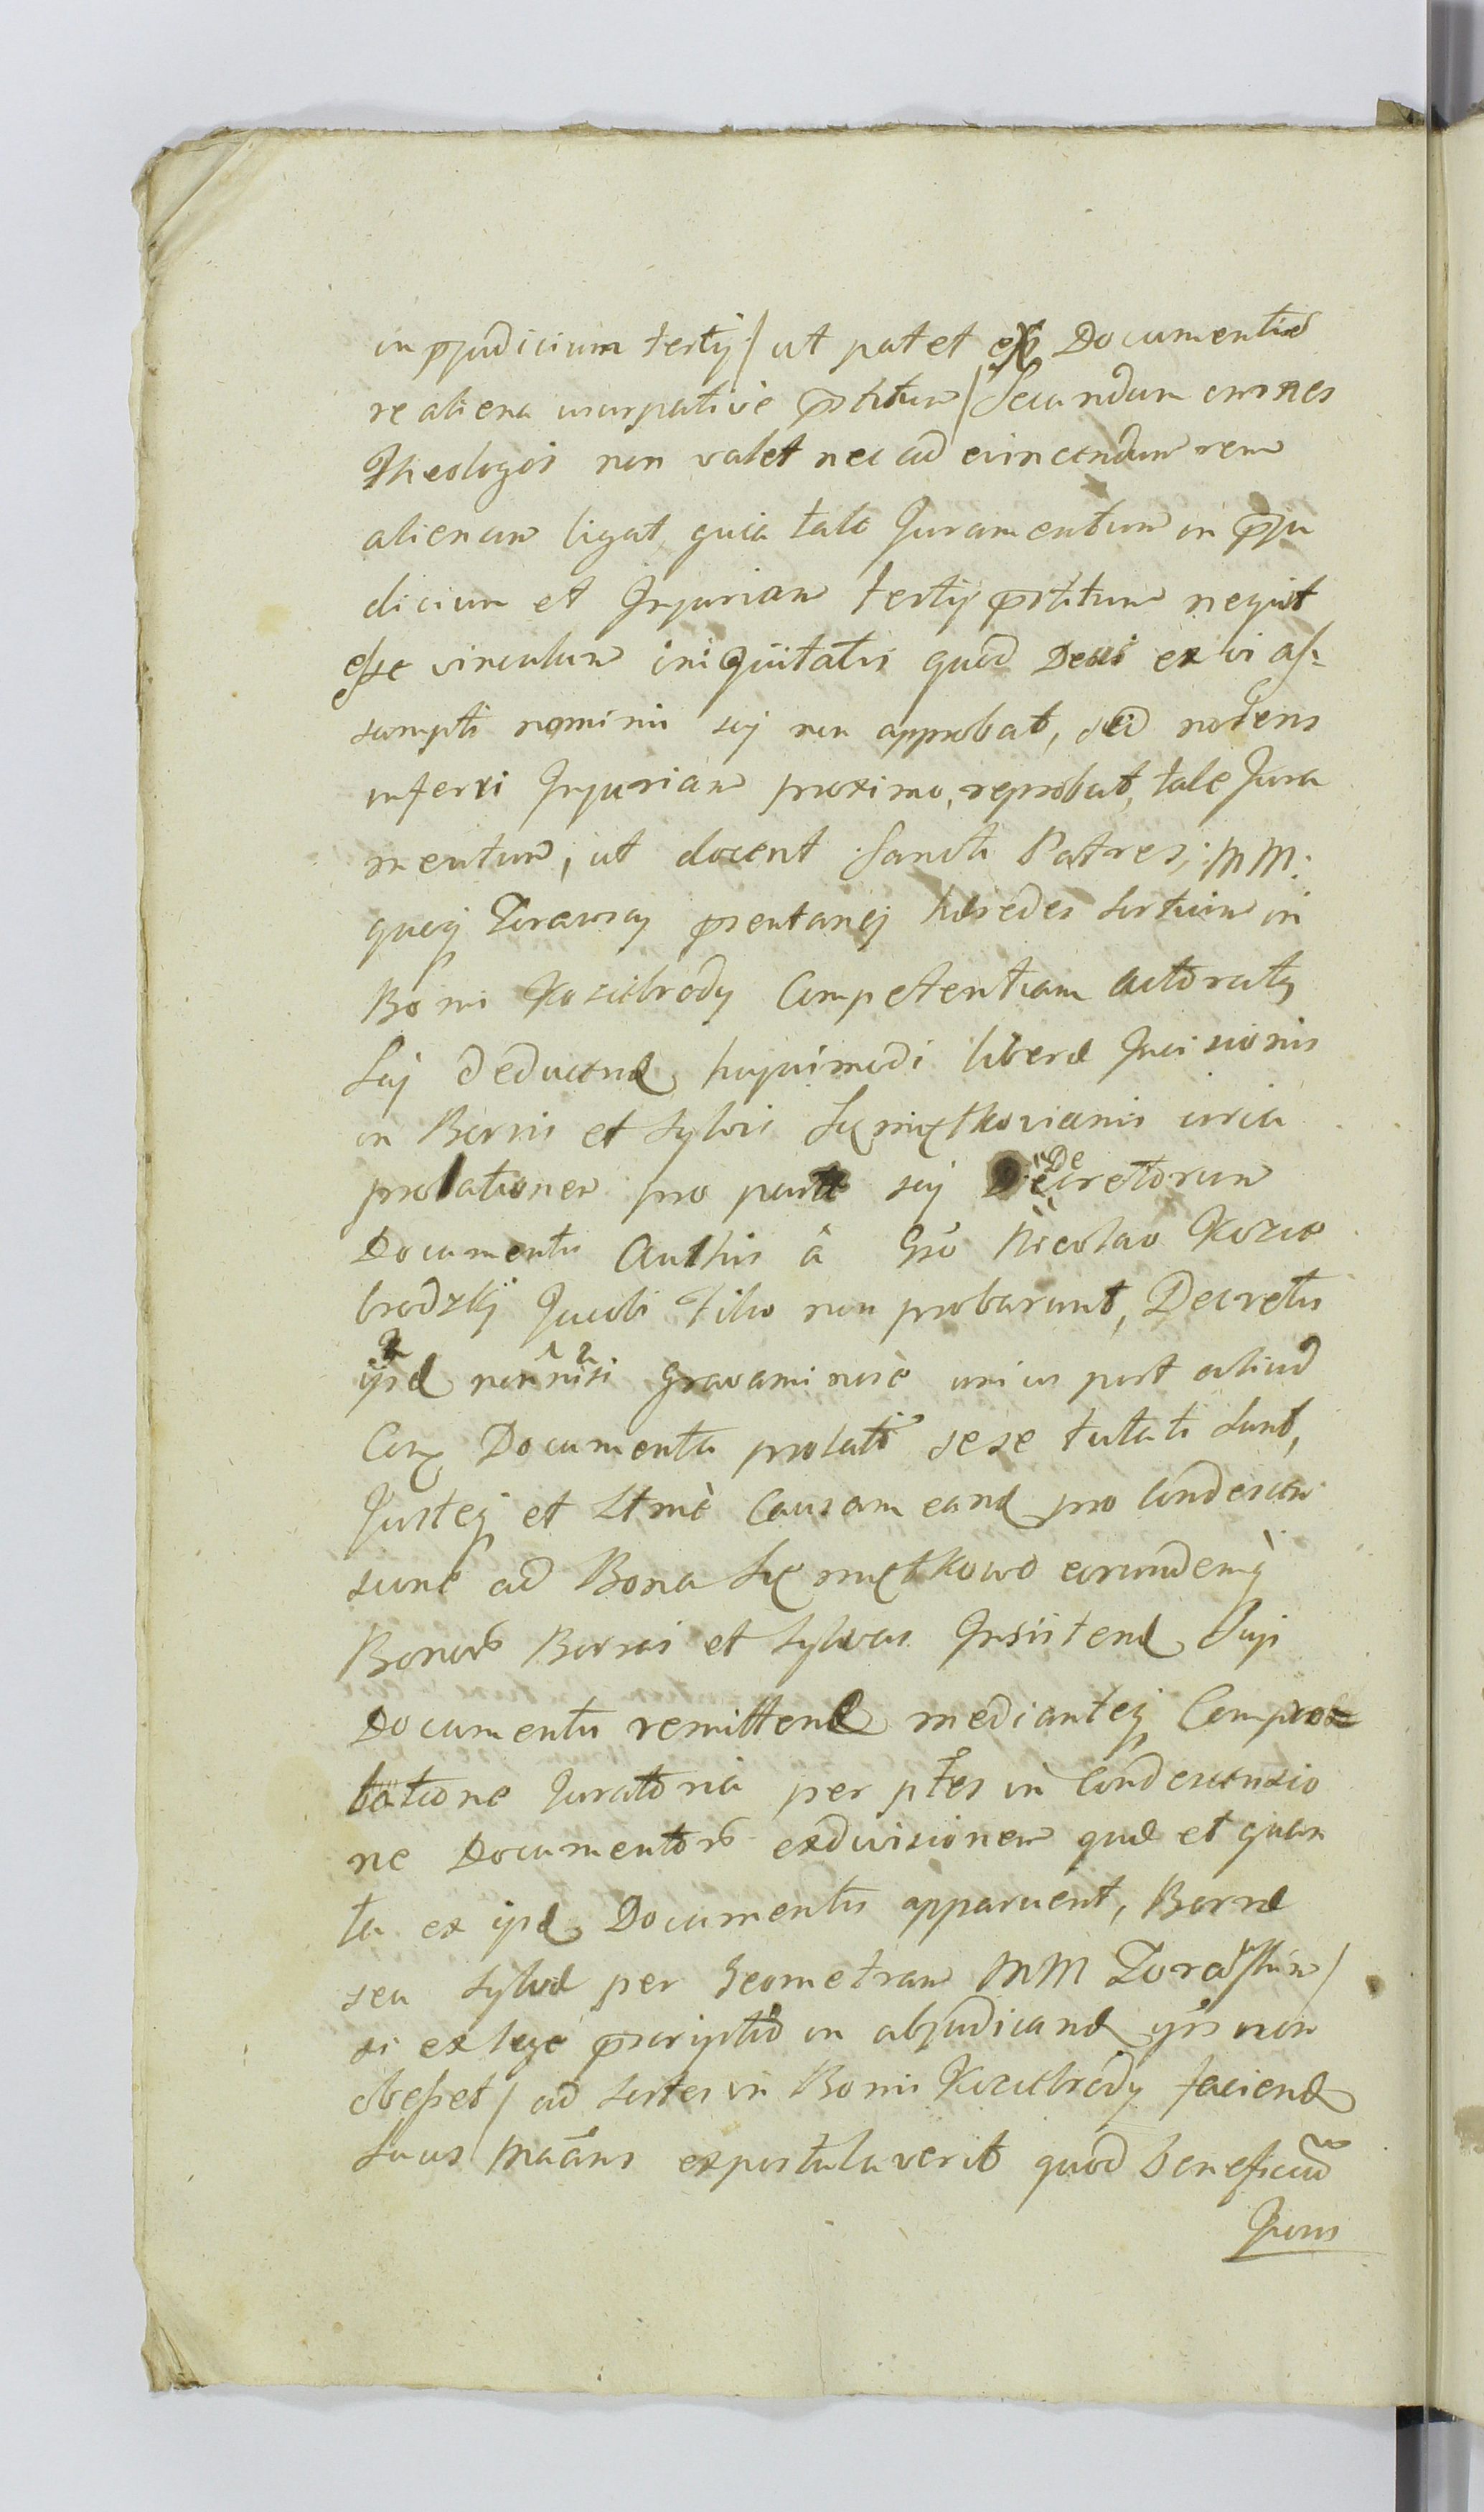 in ppjudicium tertij / ut patet ex Documentis
re aliena usurpative pstitum / Secundum omnes
Theologos non valet nec ad evincendum rem
alienam ligat, quia tale Juramentum in pju
dicium et Injuriam tertij pstitum nequit
esse vinculum iniquitatis quod Deus ex vi as:
sumpti nominis sui non approbat, sed nolens
inferri Injuriam proximo, reprobat, tale Jura
mentum, ut docent Sancti Patres; MM:
quoq Zorawscy psentanei hæredes sortium in
Bonis Kosiebrody Competentiam actoratq
Sui deducend hujusmodi liberæ Incisionis
in Borris et Sylvis Sęmiętkovianis circa
prolationem pro parte sui Decretorum
Documentis Authis â Gso Nicolao Kozie
brodzkij Jacobi Filio non probarunt, Decretis
ipsd non nisi Gravaminose unius post aliud
Con Documenta prolatis sese tutati sunt,
Justeq et Ltmè Causam eand pro Condescen
sione ad Bona Sęmiętkowo eorundemq
Bonor Borras et Sylvas Insistend Suis
Documentis remittend medianteq Compro
batione Juratoria per ptes in Condescensio
ne Documentor exdivisionem quæ et quan
ta ex ipsd Documentis apparuent, Borræ
seu Sylvæ per Geometram MM Zorawskim /
si ex lege pscriptio in abjudicand ijs non
obesset / ad Sortes in Bonis Koziebrody faciend
Suus Matans expostulaverit quod beneficium
Juris